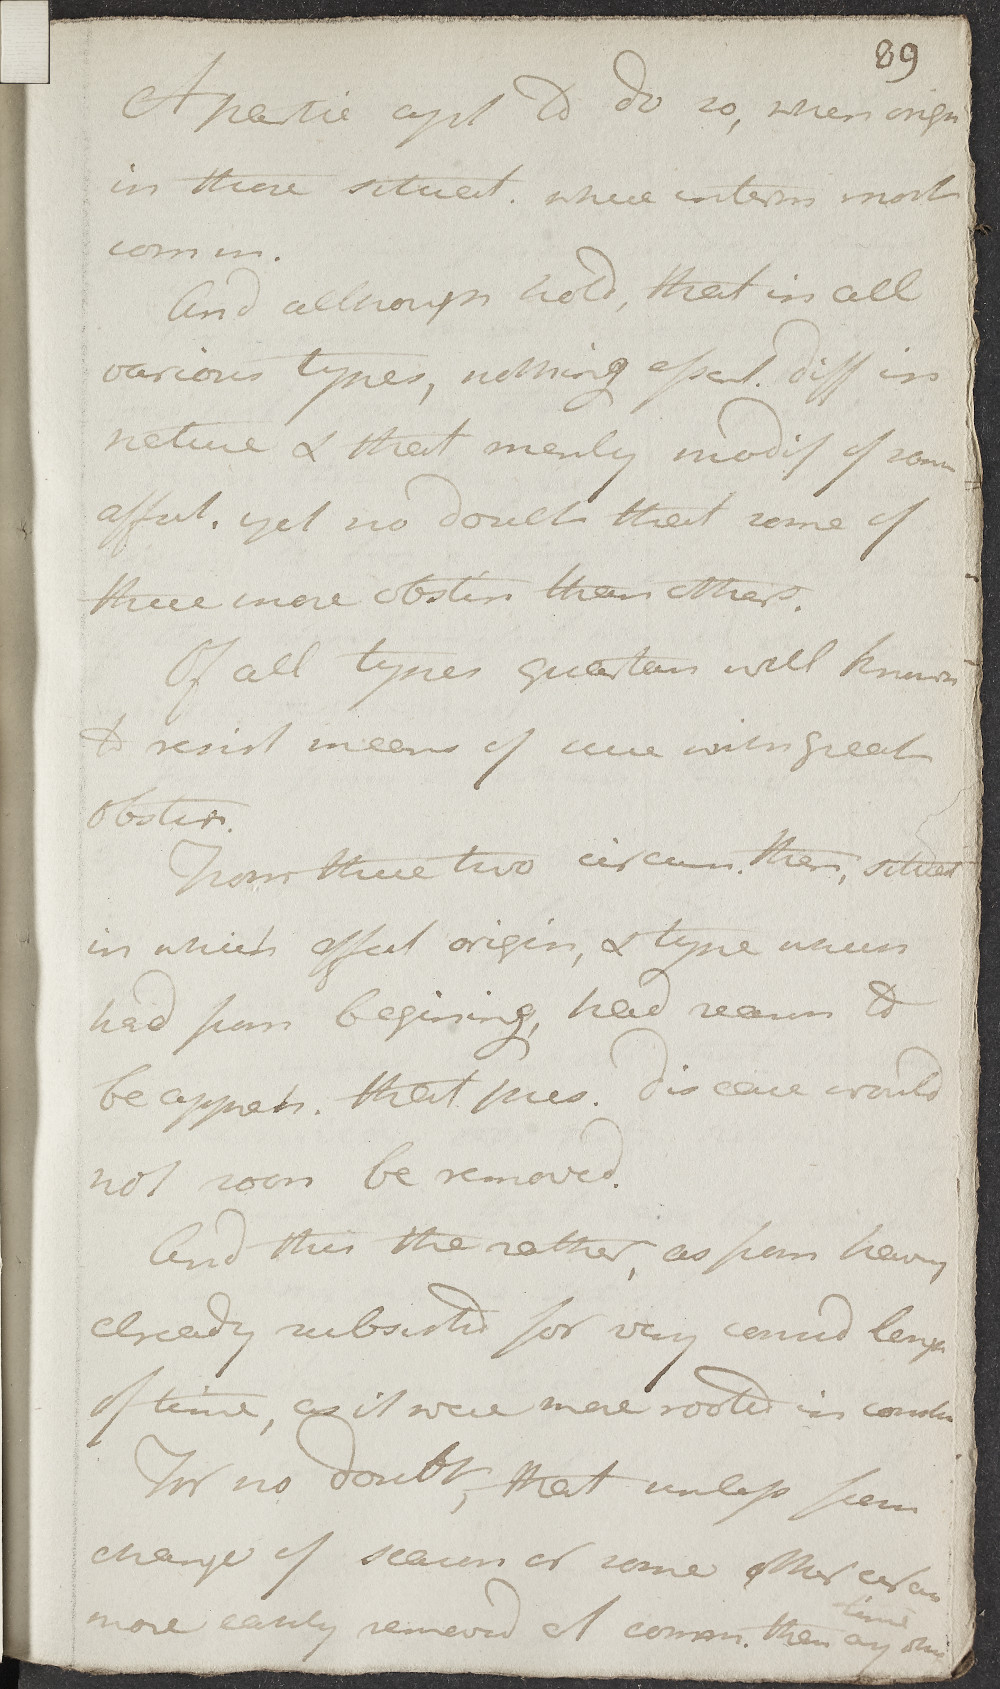 89
& partic apt to do so, when origin
in those situat. where interm most
comm.
And although hold, that in all
various types, nothing essent. diff in
nature & that merely modif of same
affect. yet no doubt that some of
these more obstin than others.
Of all types quartan well known
to resist means of cure with great
obstin.
From these two circum. then, situat
in which affect origin, & type which
had from begining, had reason to
be appreh. that pres. disease would
not soon be removed.
And this the rather, as from having
already subsisted for very consid length
of time, as it were more rooted in constit
For no doubt, that unless from
change of season or some other circum
time
more easily removed at comm. than any other